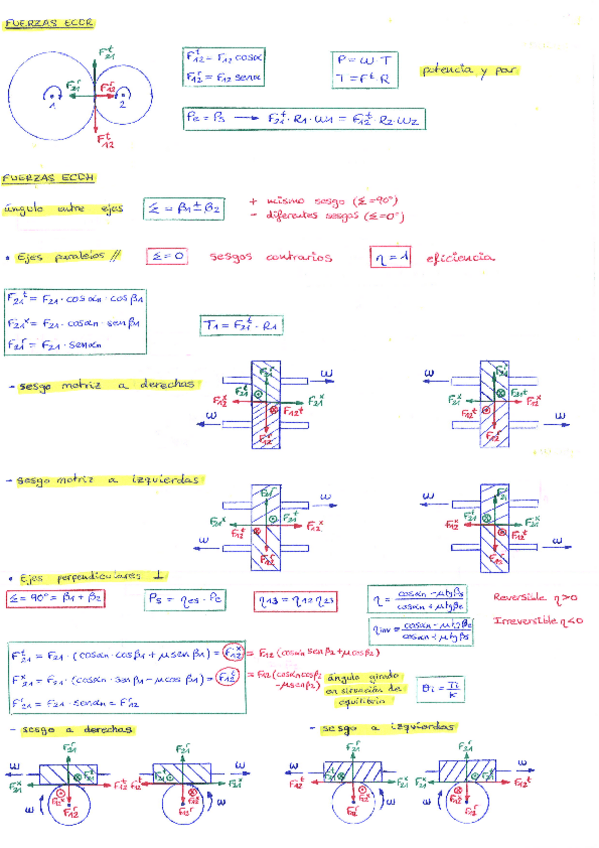 FUERZAS ECDR
F₂₁ᵗ
F₂₁ʳ F₁₂ʳ
1 2
F₁₂ᵗ
F₁₂ᵗ = F₁₂ cosα
F₁₂ʳ = F₁₂ senα
P = ω T
T = Fᵗ R
potencia y par
Pe = Ps → F₂₁ᵗ · R₁ · ω₁ = F₁₂ᵗ · R₂ · ω₂
FUERZAS ECDH
ángulo entre ejes
Σ = β₁ ± β₂
+ mismo sesgo (Σ=90°)
- diferentes sesgos (Σ=0°)
• Ejes paralelos //
Σ=0
sesgos contrarios
η = 1
eficiencia
F₂₁ᵗ = F₂₁ · cosαn · cosβ₁
F₂₁ˣ = F₂₁ · cosαn · senβ₁
F₂₁ʳ = F₂₁ · senαn
T₁ = F₂₁ᵗ · R₁
- sesgo motriz a derechas
ω F₂₁ʳ F₂₁ᵗ F₁₂ˣ F₂₁ˣ F₁₂ᵗ F₁₂ʳ ω
ω F₂₁ʳ F₂₁ᵗ F₂₁ˣ F₁₂ˣ F₁₂ᵗ F₁₂ʳ ω
- sesgo motriz a izquierdas
ω F₂₁ʳ F₂₁ᵗ F₂₁ˣ F₁₂ˣ F₁₂ᵗ F₁₂ʳ ω
ω F₂₁ʳ F₂₁ᵗ F₁₂ˣ F₂₁ˣ F₁₂ᵗ F₁₂ʳ ω
• Ejes perpendiculares ⊥
Σ = 90° = β₁ + β₂
Ps = ηes · Pe
η₁₃ = η₁₂ η₂₃
η = (cosαn - μtgβe) / (cosαn + μtgβs)
ηinv = (cosαn - μtgβs) / (cosαn + μtgβe)
Reversible η>0
Irreversible η<0
F₂₁ᵗ = F₂₁ · (cosαn · cosβ₁ + μsenβ₁) = F₁₂ˣ = F₁₂ (cosαn senβ₂ + μcosβ₂)
F₂₁ˣ = F₂₁ · (cosαn · senβ₁ - μcosβ₁) = F₁₂ᵗ = F₁₂ (cosαn cosβ₂ - μsenβ₂)
F₂₁ʳ = F₂₁ · senαn = F₁₂ʳ
ángulo girado
en situación de
equilibrio
θi = Ti / K
- sesgo a derechas
- sesgo a izquierdas
ω F₂₁ʳ F₂₁ᵗ F₂₁ˣ F₁₂ᵗ F₁₂ˣ F₁₂ʳ ω
F₂₁ʳ ω F₂₁ᵗ F₁₂ᵗ F₂₁ˣ F₁₂ˣ F₁₂ʳ ω
ω F₂₁ʳ F₂₁ᵗ F₁₂ᵗ F₂₁ˣ F₁₂ˣ F₁₂ʳ ω
F₂₁ʳ ω F₂₁ᵗ F₂₁ˣ F₁₂ᵗ F₁₂ˣ F₁₂ʳ ω